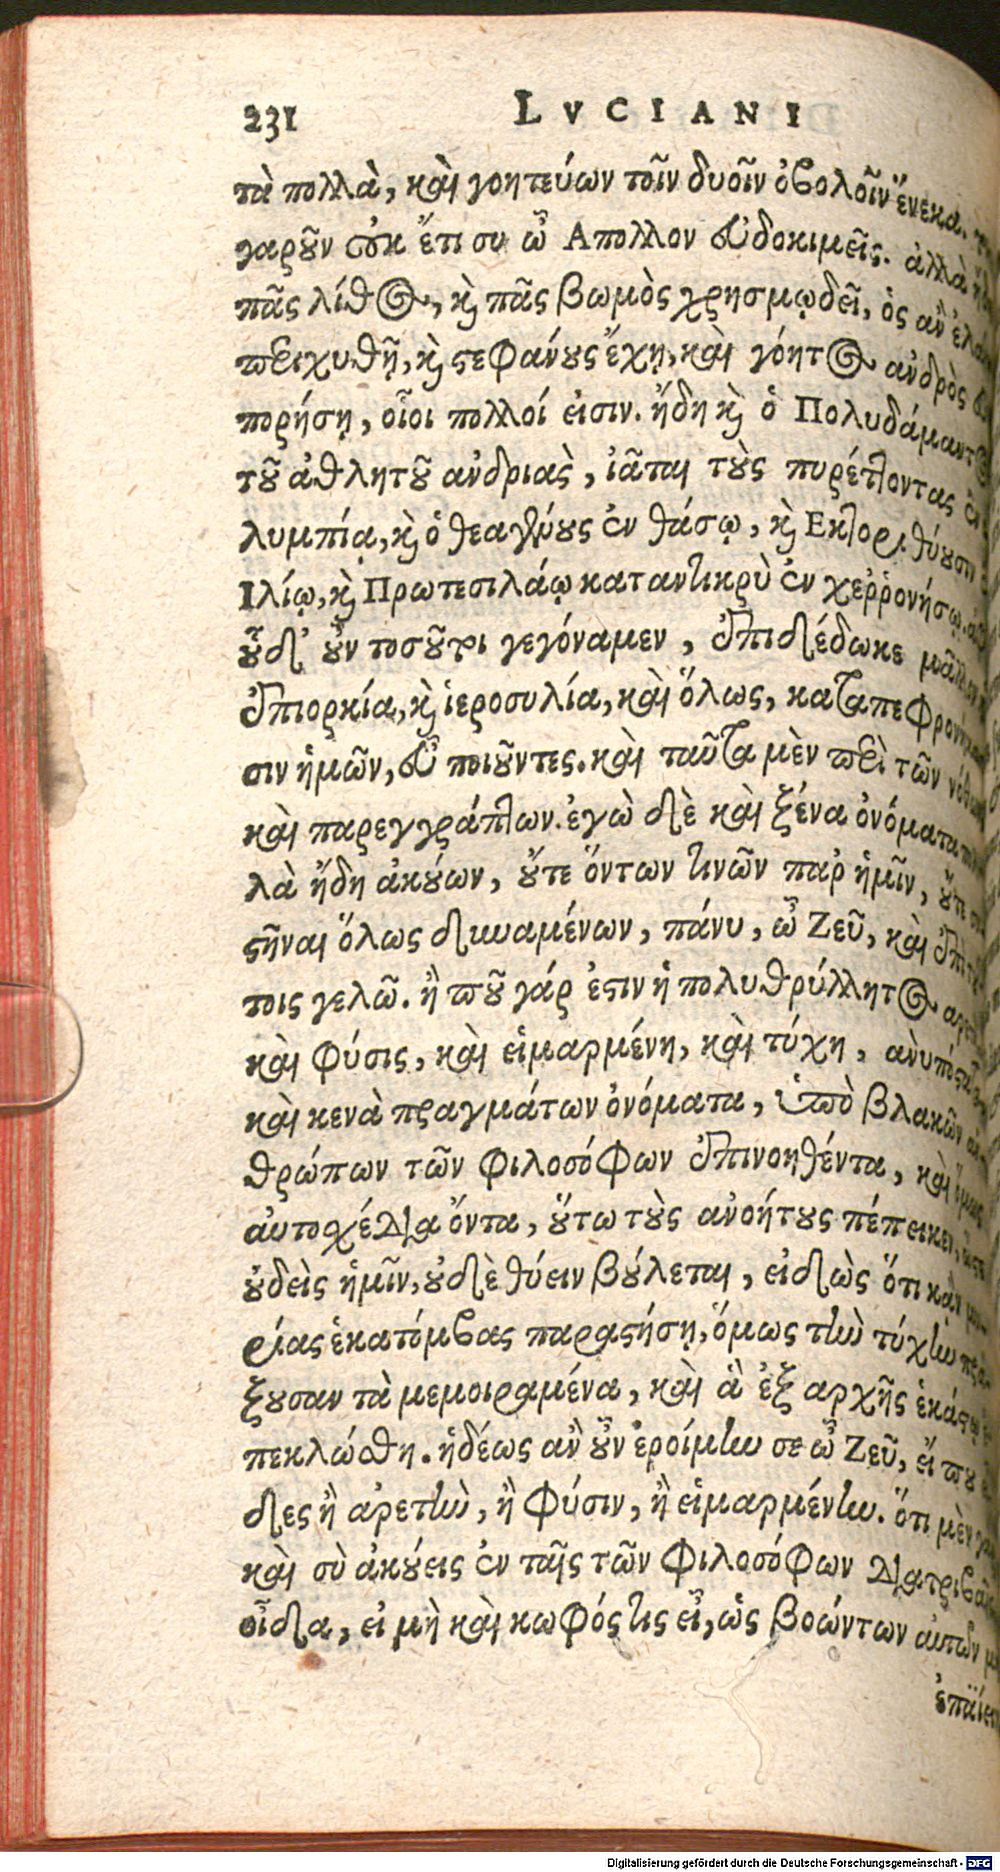 231 LVCIANI
τὰ πολλὰ, καὶ γοητεύων τοῖν δυοῖν ὀβολοῖν ἕνεκα.
γαροῦν οὐκ ἔτι συ ὦ Απολλον εὐδοκιμεῖς. ἀλλὰ
πᾶς λίθος, καὶ πᾶς βωμὸς χρησμῳδεῖ, ὃς ἂν
περιχυθῇ, καὶ στεφάνους ἔχῃ, καὶ γόητος ἀνδρὸς
πορήσῃ, οἷοι πολλοί εἰσιν. ἤδη καὶ ὁ Πολυδάμαντος
τοῦ ἀθλητοῦ ἀνδριὰς, ἰᾶται τοὺς πυρέττοντας ἐν
λυμπίᾳ, καὶ ὁ θεαγένους ἐν θάσῳ, καὶ Εκτορι θύουσιν
Ιλίῳ, καὶ Πρωτεσιλάῳ καταντικρὺ ἐν χεῤῥονήσῳ.
οὗ δ' οὖν τοσοῦτοι γεγόναμεν, ἐπιδέδωκε μᾶλλον
ἐπιορκία, καὶ ἱεροσυλία, καὶ ὅλως, καταπεφρονήκα
σιν ἡμῶν, εὖ ποιοῦντες. καὶ ταῦτα μὲν περὶ τῶν νόθων
καὶ παρεγγράπτων. ἐγὼ δὲ καὶ ξένα ὀνόματα
λὰ ἤδη ἀκούων, οὔτε ὄντων τινῶν παρ ἡμῖν, οὔτε
στῆναι ὅλως δυναμένων, πάνυ, ὦ Ζεῦ, καὶ ἐπὶ
τοις γελῶ. ἢ ποῦ γάρ ἐστιν ἡ πολυθρύλλητος
καὶ φύσις, καὶ εἱμαρμένη, καὶ τύχη, ἀνυπόστατα
καὶ κενὰ πραγμάτων ὀνόματα, ὑπὸ βλακῶν
θρώπων τῶν φιλοσόφων ἐπινοηθέντα, καὶ ὅμως
αὐτοσχέδια ὄντα, οὕτω τοὺς ἀνοήτους πέπεικεν,
οὐδεὶς ἡμῖν, οὐδὲ θύειν βούλεται, εἰδὼς ὅτι κἂν μυ-
ρίας ἑκατόμβας παραστήσῃ, ὅμως τὴν τύχην πρά-
ξουσαν τὰ μεμοιραμένα, καὶ ἃ ἐξ αρχῆς ἑκάστῳ
πεκλώσθη. ἡδέως ἂν οὖν ἐροίμην σε ὦ Ζεῦ, εἴ που
δες ἢ ἀρετὴν, ἢ φύσιν, ἢ εἱμαρμένην. ὅτι μὲν
καὶ σὺ ἀκούεις ἐν ταῖς τῶν φιλοσόφων διατριβαῖς
οἶδα, εἰ μὴ καὶ κωφός τις εἶ, ὡς βοώντων αὐτῶν
ἐπαΐειν
Digitalisierung gefördert durch die Deutsche Forschungsgemeinschaft - DFG